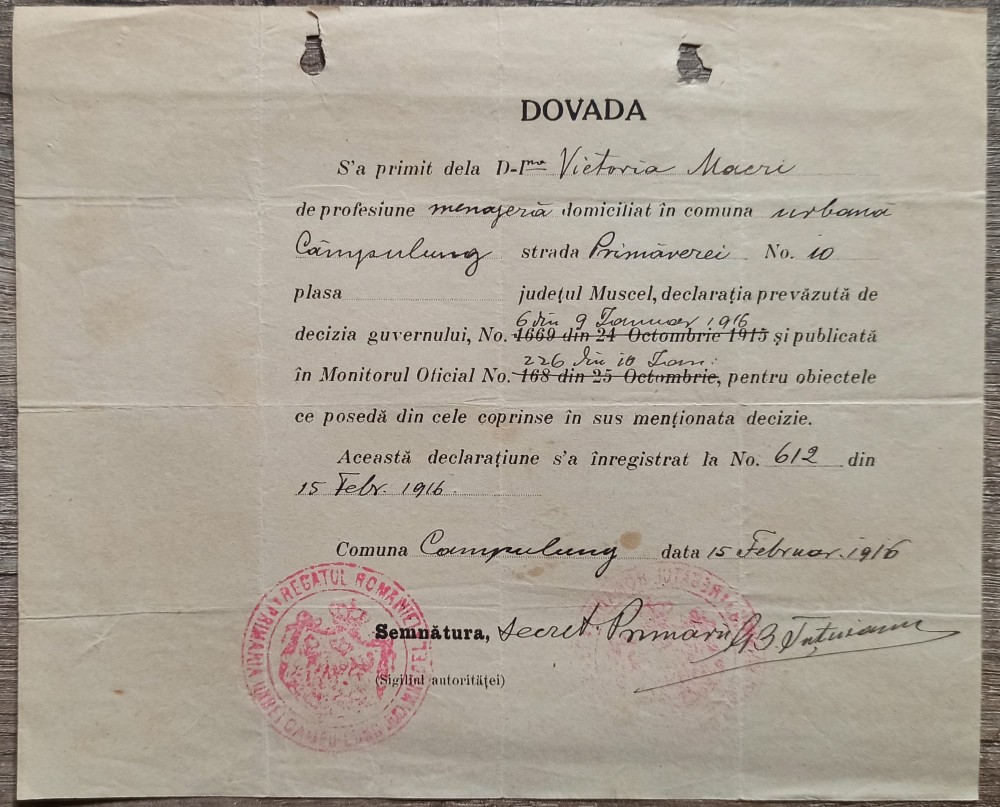 DOVADA
S'a primit dela D-l na Victoria Macri
de profesiune menajeră domiciliat în comuna urbană
Câmpulung strada Primăverei No. 10
plasa județul Muscel, declarația prevăzută de
6 din 9 Ianuar 1916
decizia guvernului, No. 1669 din 24 Octombrie 1915 și publicată
226 din 10 Ian:
în Monitorul Oficial No. 168 din 25 Octombrie, pentru obiectele
ce posedă din cele coprinse în sus menționata decizie.
Această declarațiune s'a înregistrat la No. 612 din
15 Febr. 1916.
Comuna Campulung data 15 Februar. 1916
REGATUL ROMANIEI
PRIMARIA URBEI CAMPU-LUNG JUD. MUSCEL
Semnătura, secret. Primarii
(Sigiliul autorităței)